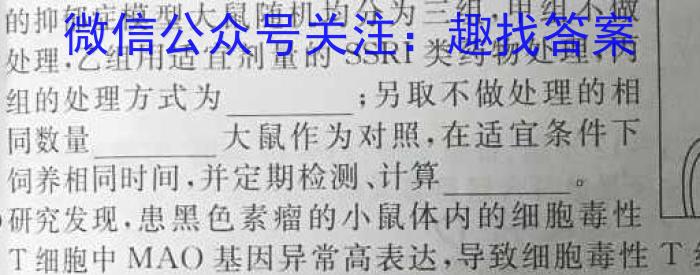 的抑郁症模型大鼠随机均分为三组,甲组不做
微信公众号关注:趣找答案
处理,乙组用适宜剂量的SSRI类药物处理,丙
组的处理方式为________;另取不做处理的相
同数量________大鼠作为对照,在适宜条件下
饲养相同时间,并定期检测、计算________。
研究发现,患黑色素瘤的小鼠体内的细胞毒性
T细胞中MAO基因异常高表达,导致细胞毒性T